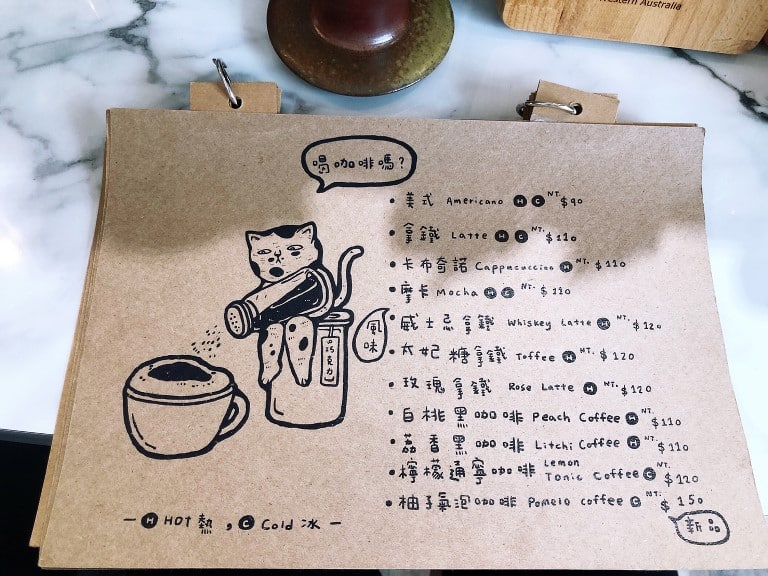 Western Australia
喝咖啡嗎?
• 美式 Americano H C NT. $90
• 拿鐵 Latte H C NT. $110
• 卡布奇諾 Cappucuccino H NT. $110
• 摩卡 Mocha H C NT. $120
• 威士忌拿鐵 Whiskey Latte H NT. $120
• 太妃糖拿鐵 Toffee H NT. $120
• 玫瑰拿鐵 Rose Latte H NT. $120
• 白桃黑咖啡 Peach Coffee H NT. $110
• 荔香黑咖啡 Litchi Coffee H NT. $110
• 檸檬通寧咖啡 Lemon Tonic Coffee C NT. $120
• 柚子氣泡咖啡 Pomelo coffee C NT. $150
新品
風味
巧克力
— H HOT 熱 , C Cold 冰 —